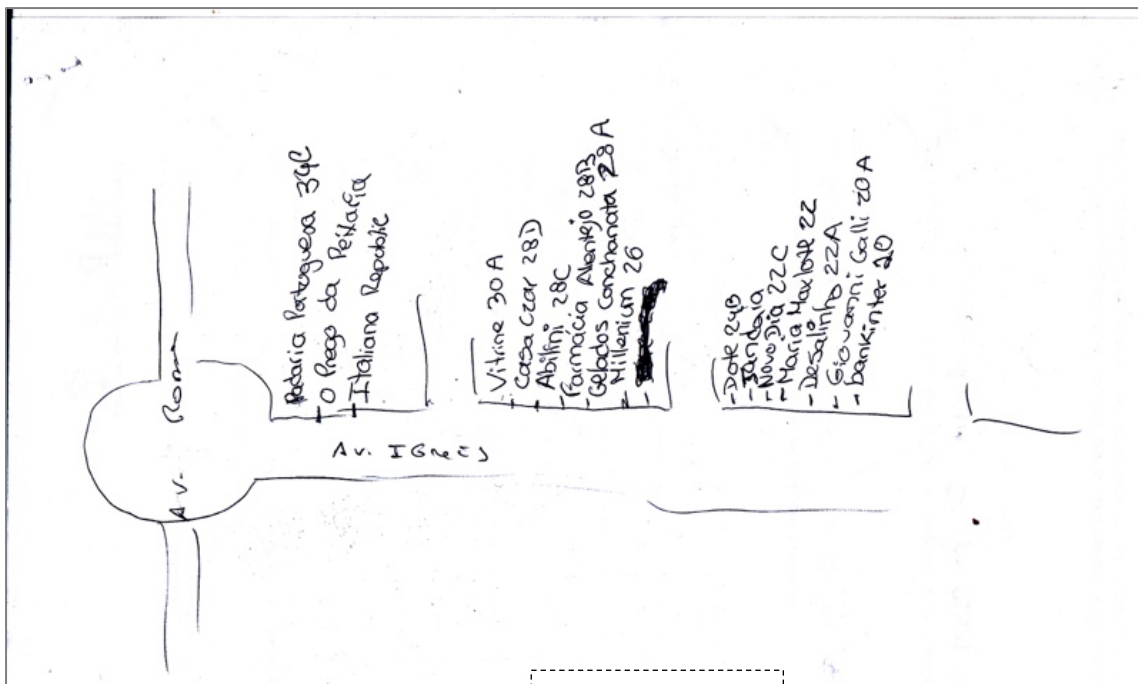 Av. Roma
Padaria Portuguesa 34C
O Prego da Peixaria
Italiana Republic
Av. Igreja
Vitrine 30A
Casa Czar 28D
Abilini 28C
Farmácia Alentejo 28B
Gelados Conchanata 28A
Millenium 26
- Dote 24B
- Jandaia
- Novo Dia 22C
- Maria Maxlote 22
- Desalinho 22A
- Giovanni Galli 20A
- bankinter 20